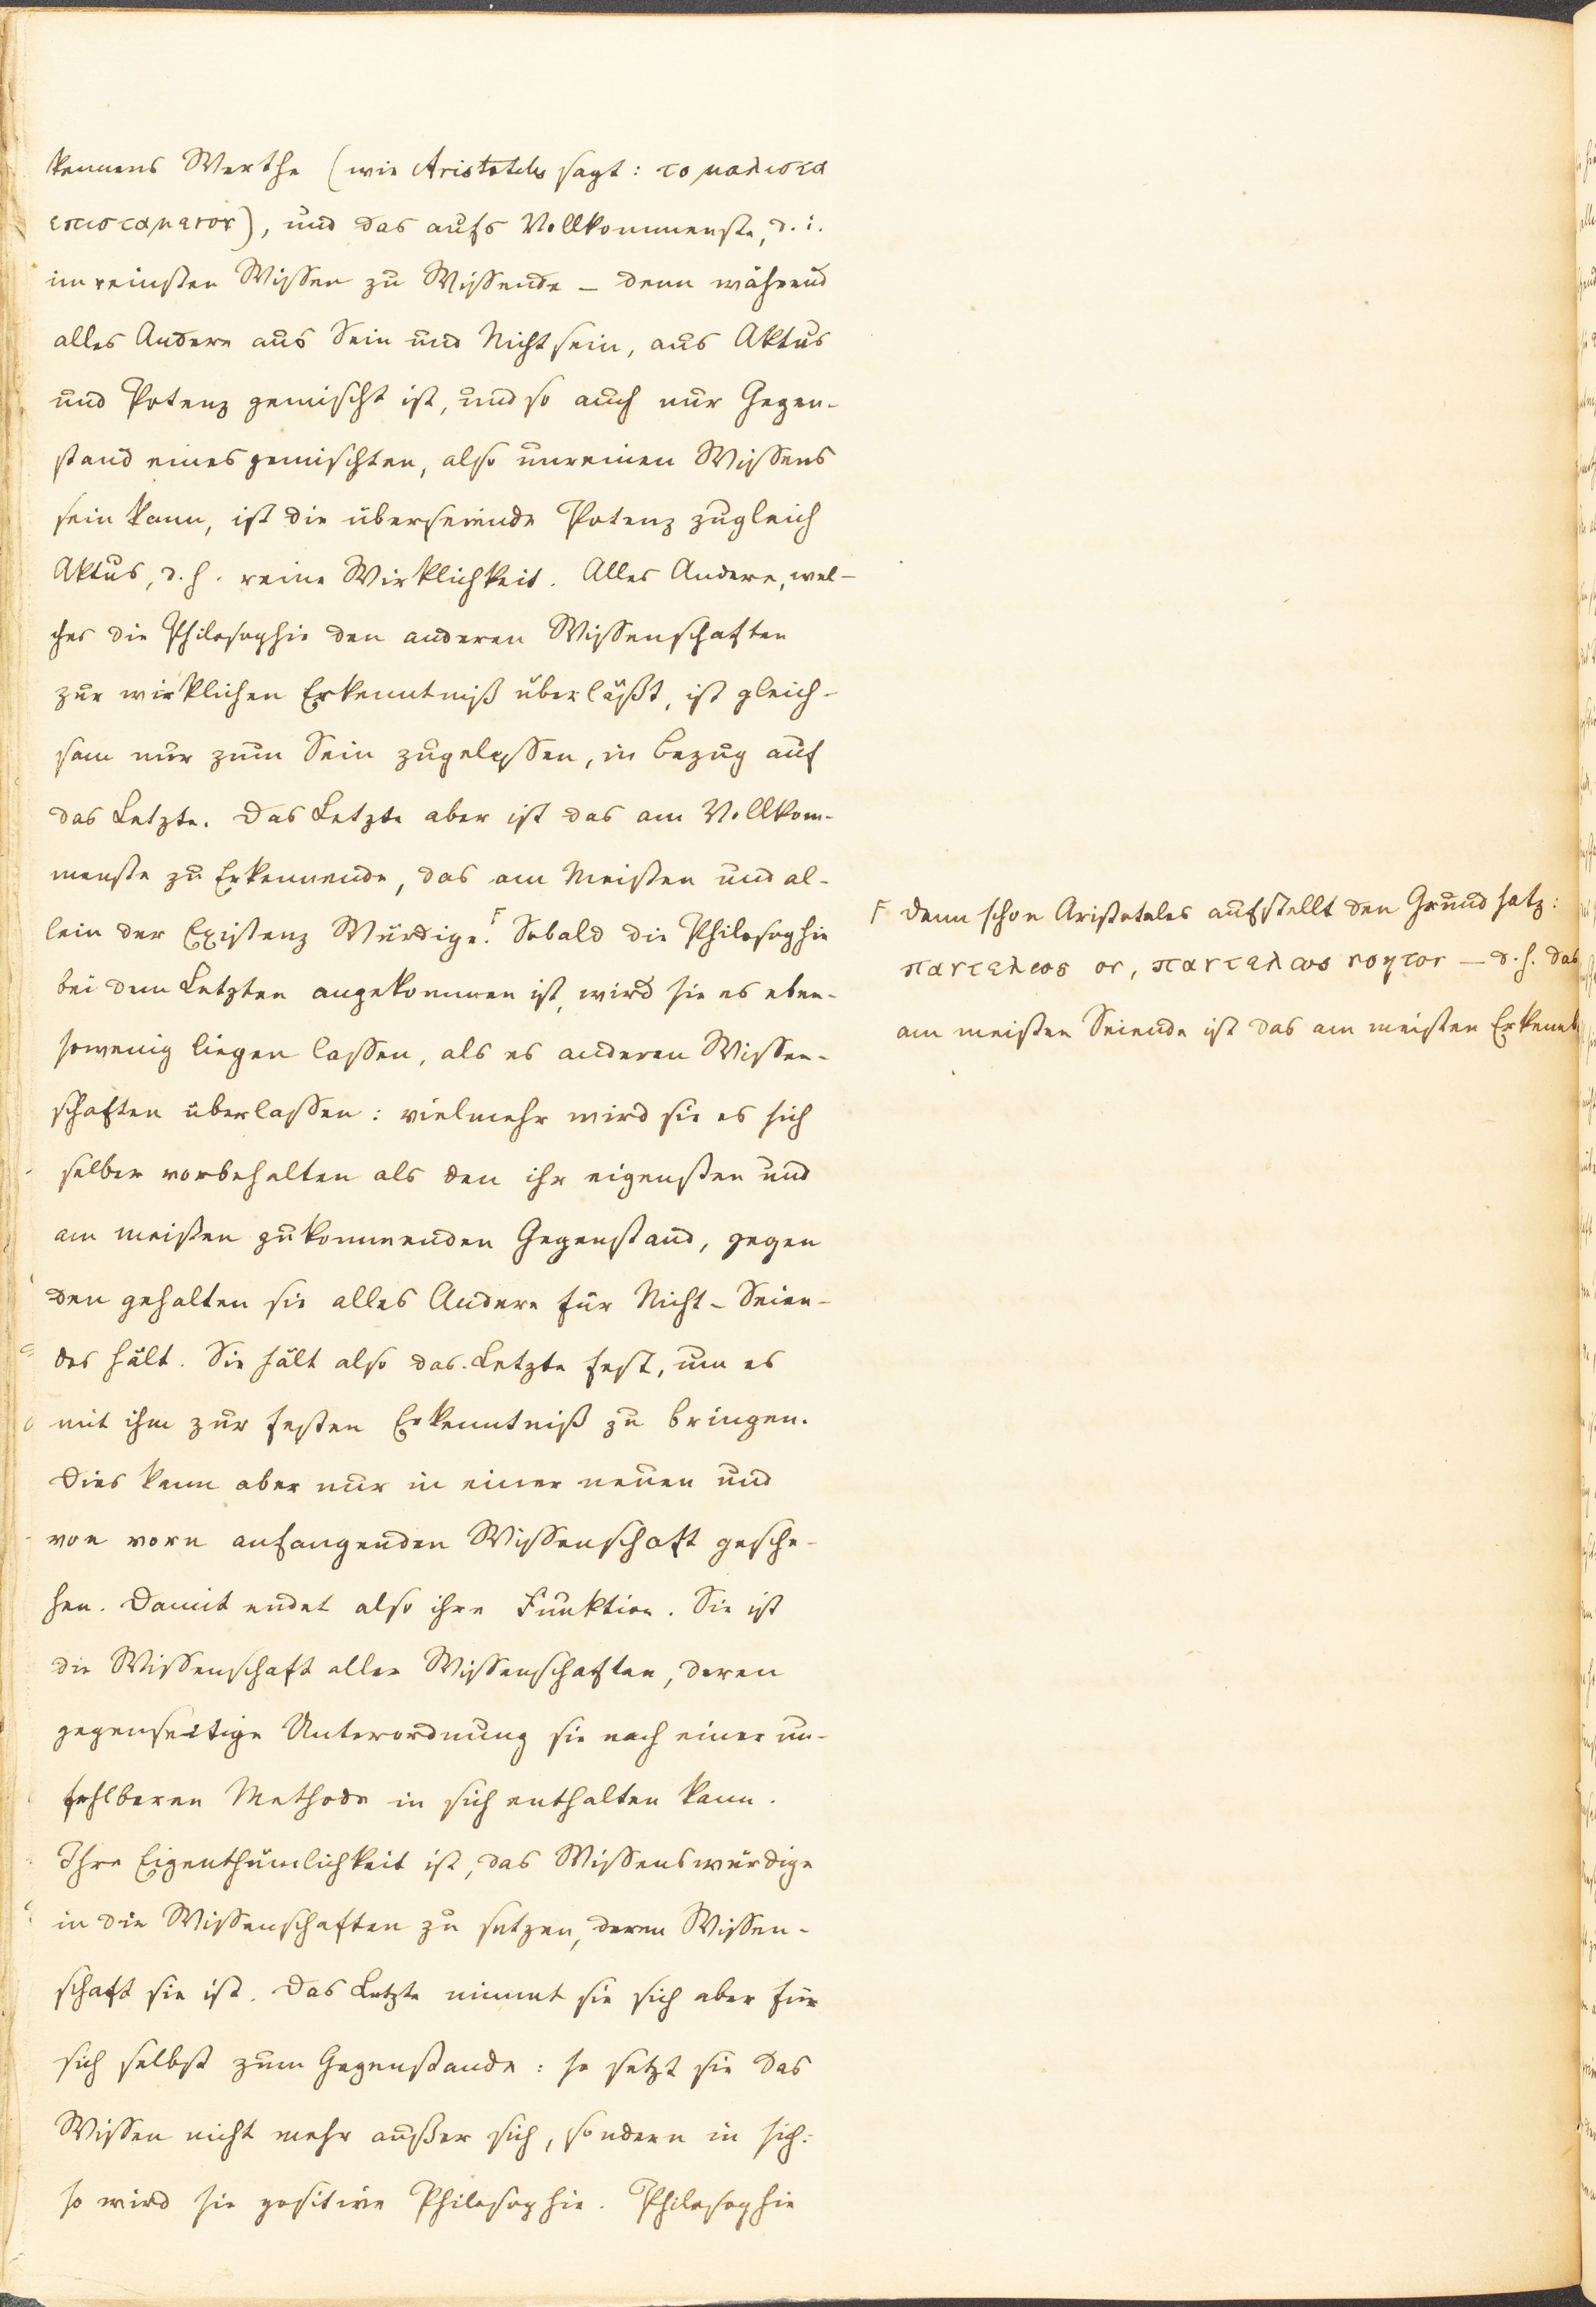 kennens Werthe (wie Aristoteles sagt: το μαλιστα
επισταματον), und das aufs Vollkommenste, d. i.
im reinsten Wissen zu Wissende – denn während
alles Andere aus Sein und Nichtsein, aus Aktus
und Potenz gemischt ist, und so auch nur Gegen-
stand eines gemischten, also unreinen Wissens
sein kann, ist die überseiende Potenz zugleich
Aktus, d. h. reine Wirklichkeit. Alles Andere, wel-
ches die Philosophie den anderen Wissenschaften
zur wirklichen Erkenntniß überläßt, ist gleich-
sam nur zum Sein zugelassen, in Bezug auf
das Letzte. Das Letzte aber ist das am Vollkom-
menste zu Erkennende, das am Meisten und al-
lein der Existenz Würdige.Γ Sobald die Philosophie
bei dem Letzten angekommen ist, wird sie es eben-
sowenig liegen lassen, als es anderen Wissen-
schaften überlassen: vielmehr wird sie es sich
selber vorbehalten als den ihr eigensten und
am meisten zukommenden Gegenstand, gegen
den gehalten sie alles Andere für Nicht-Seien-
des hält. Sie hält also das Letzte fest, um es
mit ihm zur festen Erkenntniß zu bringen.
Dies kann aber nur in einer neuen und
von vorn anfangenden Wissenschaft gesche-
hen. Damit endet also ihre Funktion. Sie ist
die Wissenschaft aller Wissenschaften, deren
gegenseitige Unterordnung sie nach einer un-
fehlbaren Methode in sich enthalten kann.
Ihre Eigenthümlichkeit ist, das Wissenswürdige
in die Wissenschaften zu setzen, deren Wissen-
schaft sie ist. Das Letzte nimmt sie sich aber für
sich selbst zum Gegenstande: so setzt sie das
Wissen nicht mehr außer sich, sondern in sich:
so wird sie positive Philosophie. Philosophie
Γ denn schon Aristoteles aufstellt den Grundsatz:
παντελεος ον, παντελως νοητον – d. h. das
am meisten Seiende ist das am meisten Erkennb